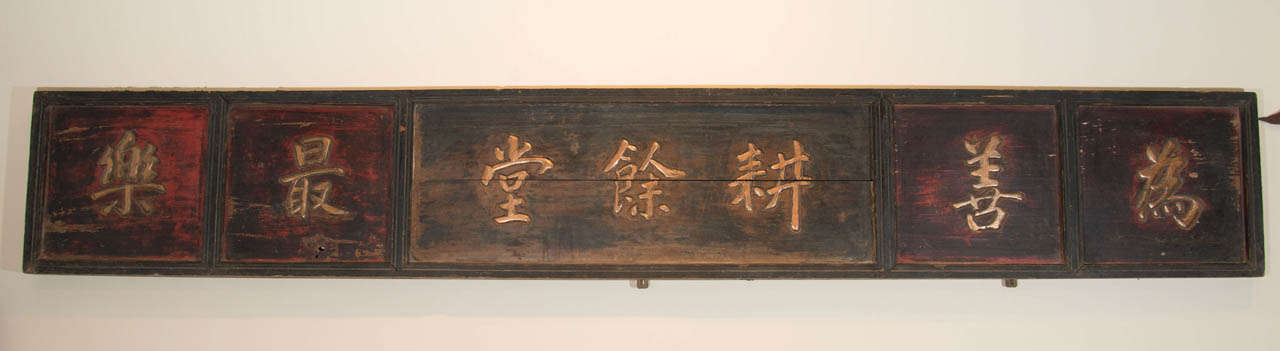 為善耕餘堂最樂